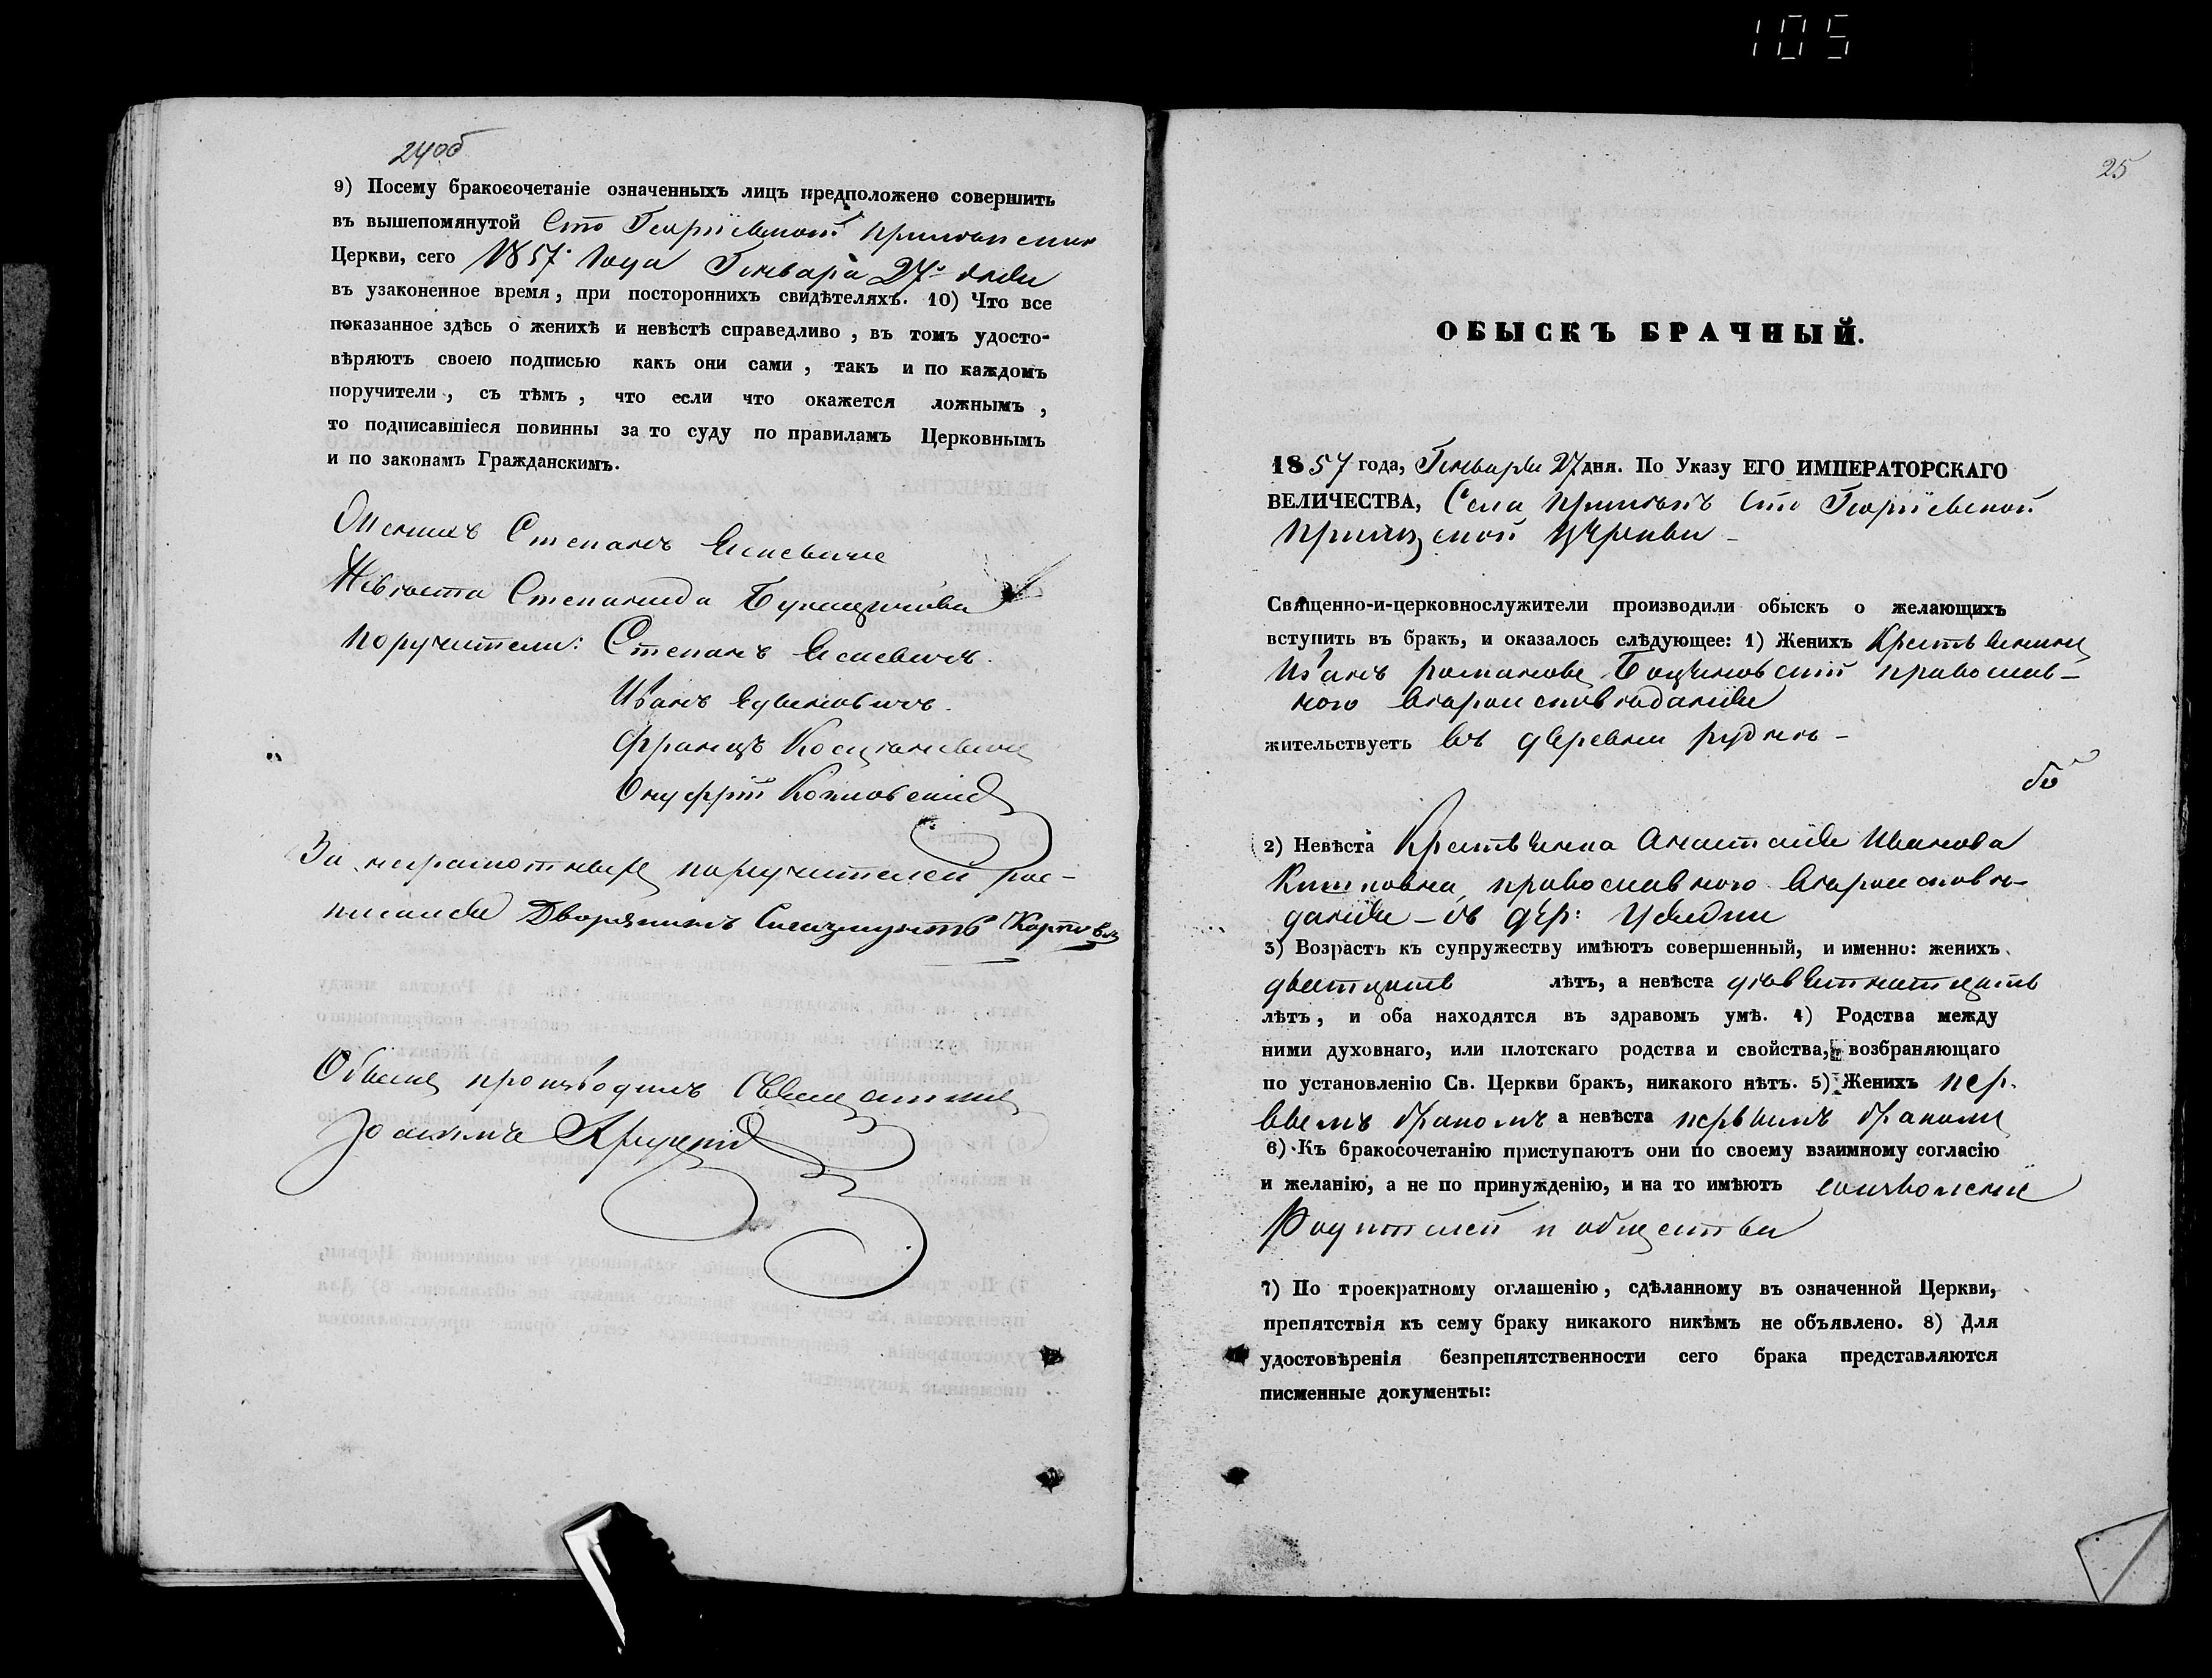 105
24об
9) Посему бракосочетаніе означенныхъ лицъ предположено совершить
въ вышепомянутой Сто Георгіевской
Церкви, сего 1857 года Генваря 27 дня
въ узаконенное время, при постороннихъ свидѣтеляхъ. 10) Что все
показанное здѣсь о женихѣ и невѣстѣ справедливо, въ томъ удосто-
вѣряютъ своею подписью какъ они сами, такъ и по каждомъ
поручители, съ тѣмъ, что если что окажется ложнымъ,
то подписавшіеся повинны за то суду по правиламъ Церковнымъ
и по законамъ Гражданскимъ.
Женихъ Степанъ
Невѣста Степанида
Поручители: Степанъ
Иванъ
Францъ
Онуфрій Козловскій
За неграмотныхъ поручителей рос-
писался Дворянинъ
Обыскъ производилъ Священникъ
Іоакимъ
25
ОБЫСКЪ БРАЧНЫЙ.
1857 года, Генваря 27 дня. По Указу ЕГО ИМПЕРАТОРСКАГО
ВЕЛИЧЕСТВА, Села Сто Георгіевской
церкви
Священно-и-церковнослужители производили обыскъ о желающихъ
вступить въ бракъ, и оказалось слѣдующее: 1) Женихъ Крестьянинъ
Иванъ Романовъ православ-
ного вѣроисповѣданія
жительствуетъ въ деревни Рудня
2) Невѣста Крестьянка Анастасія Иванова
православного вѣроисповѣ-
данія - въ дер:
3) Возрастъ къ супружеству имѣютъ совершенный, и именно: женихъ
двятцать лѣтъ, а невѣста дѣвятнатцать
лѣтъ, и оба находятся въ здравомъ умѣ. 4) Родства между
ними духовнаго, или плотскаго родства и свойства, возбраняющаго
по установленію Св. Церкви бракъ, никакого нѣтъ. 5) Женихъ пер-
вымъ бракомъ а невѣста первымъ бракомъ
6) Къ бракосочетанію приступаютъ они по своему взаимному согласію
и желанію, а не по принужденію, и на то имѣютъ соизволеніе
Родителей и общества
7) По троекратному оглашенію, сдѣланному въ означенной Церкви,
препятствія къ сему браку никакого никѣмъ не объявлено. 8) Для
удостовѣренія безпрепятственности сего брака представляются
писменные документы: